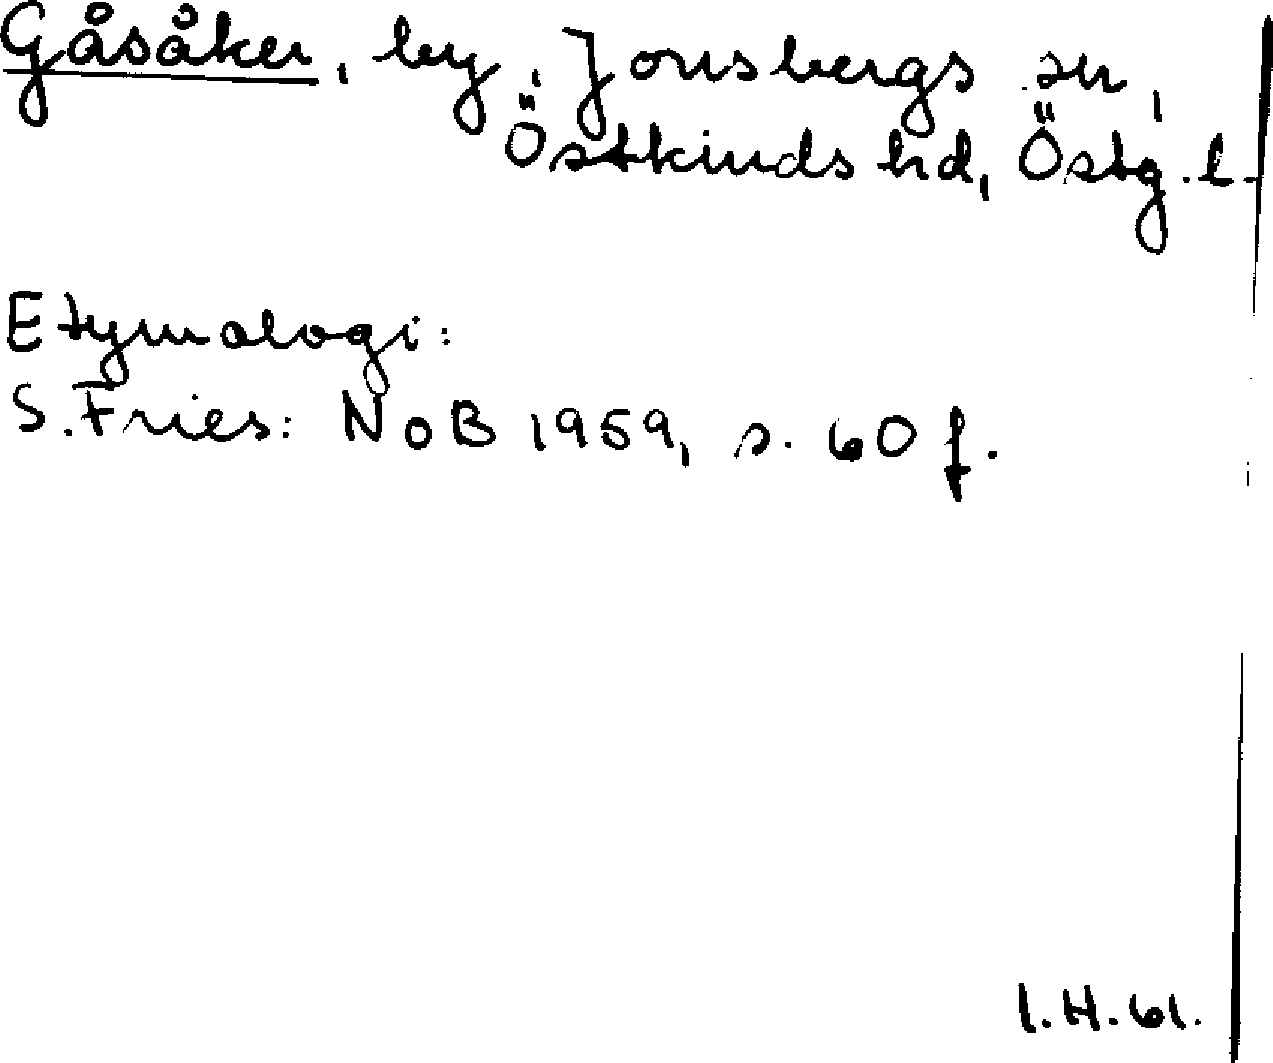 Gåsåker, by, Jonsbergs sn,
Östkinds hd, Östg. l.
Etymologi:
S. Fries: NoB 1959, s. 60 f.
I.H. 61.